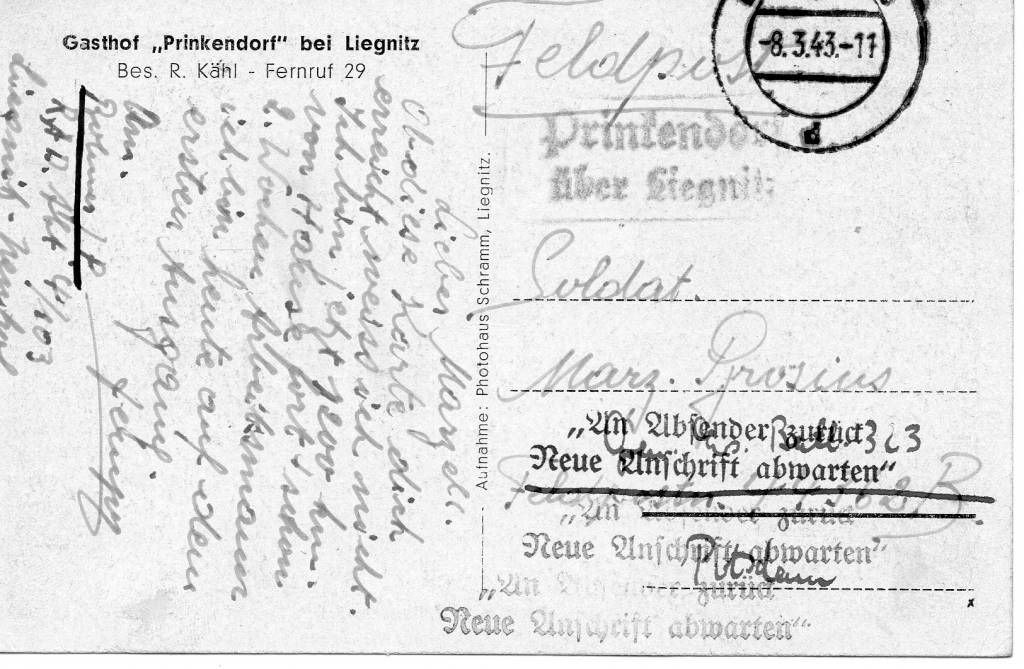 Gasthof „Prinkendorf" bei Liegnitz
Bes. R. Kähl - Fernruf 29
Lieber Marzel.
Ob diese Karte dich
erreicht weiss ich nicht.
Ich bin jetzt 700 km.
von Hause fort schon
2. Wochen Arbeitsmann
ich bin heute auf den
ersten Ausgang.
Aufnahme: Photohaus Schramm, Liegnitz.
-8.3.43.-11
d
Feldpost
Prinkendorf
über Liegnitz
Soldat.
Marz. Brosius
„An Absender zurück
Neue Anschrift abwarten"
B.
„An Absender zurück
Neue Anschrift abwarten"
Potsdam
„An Absender zurück
Neue Anschrift abwarten"
x